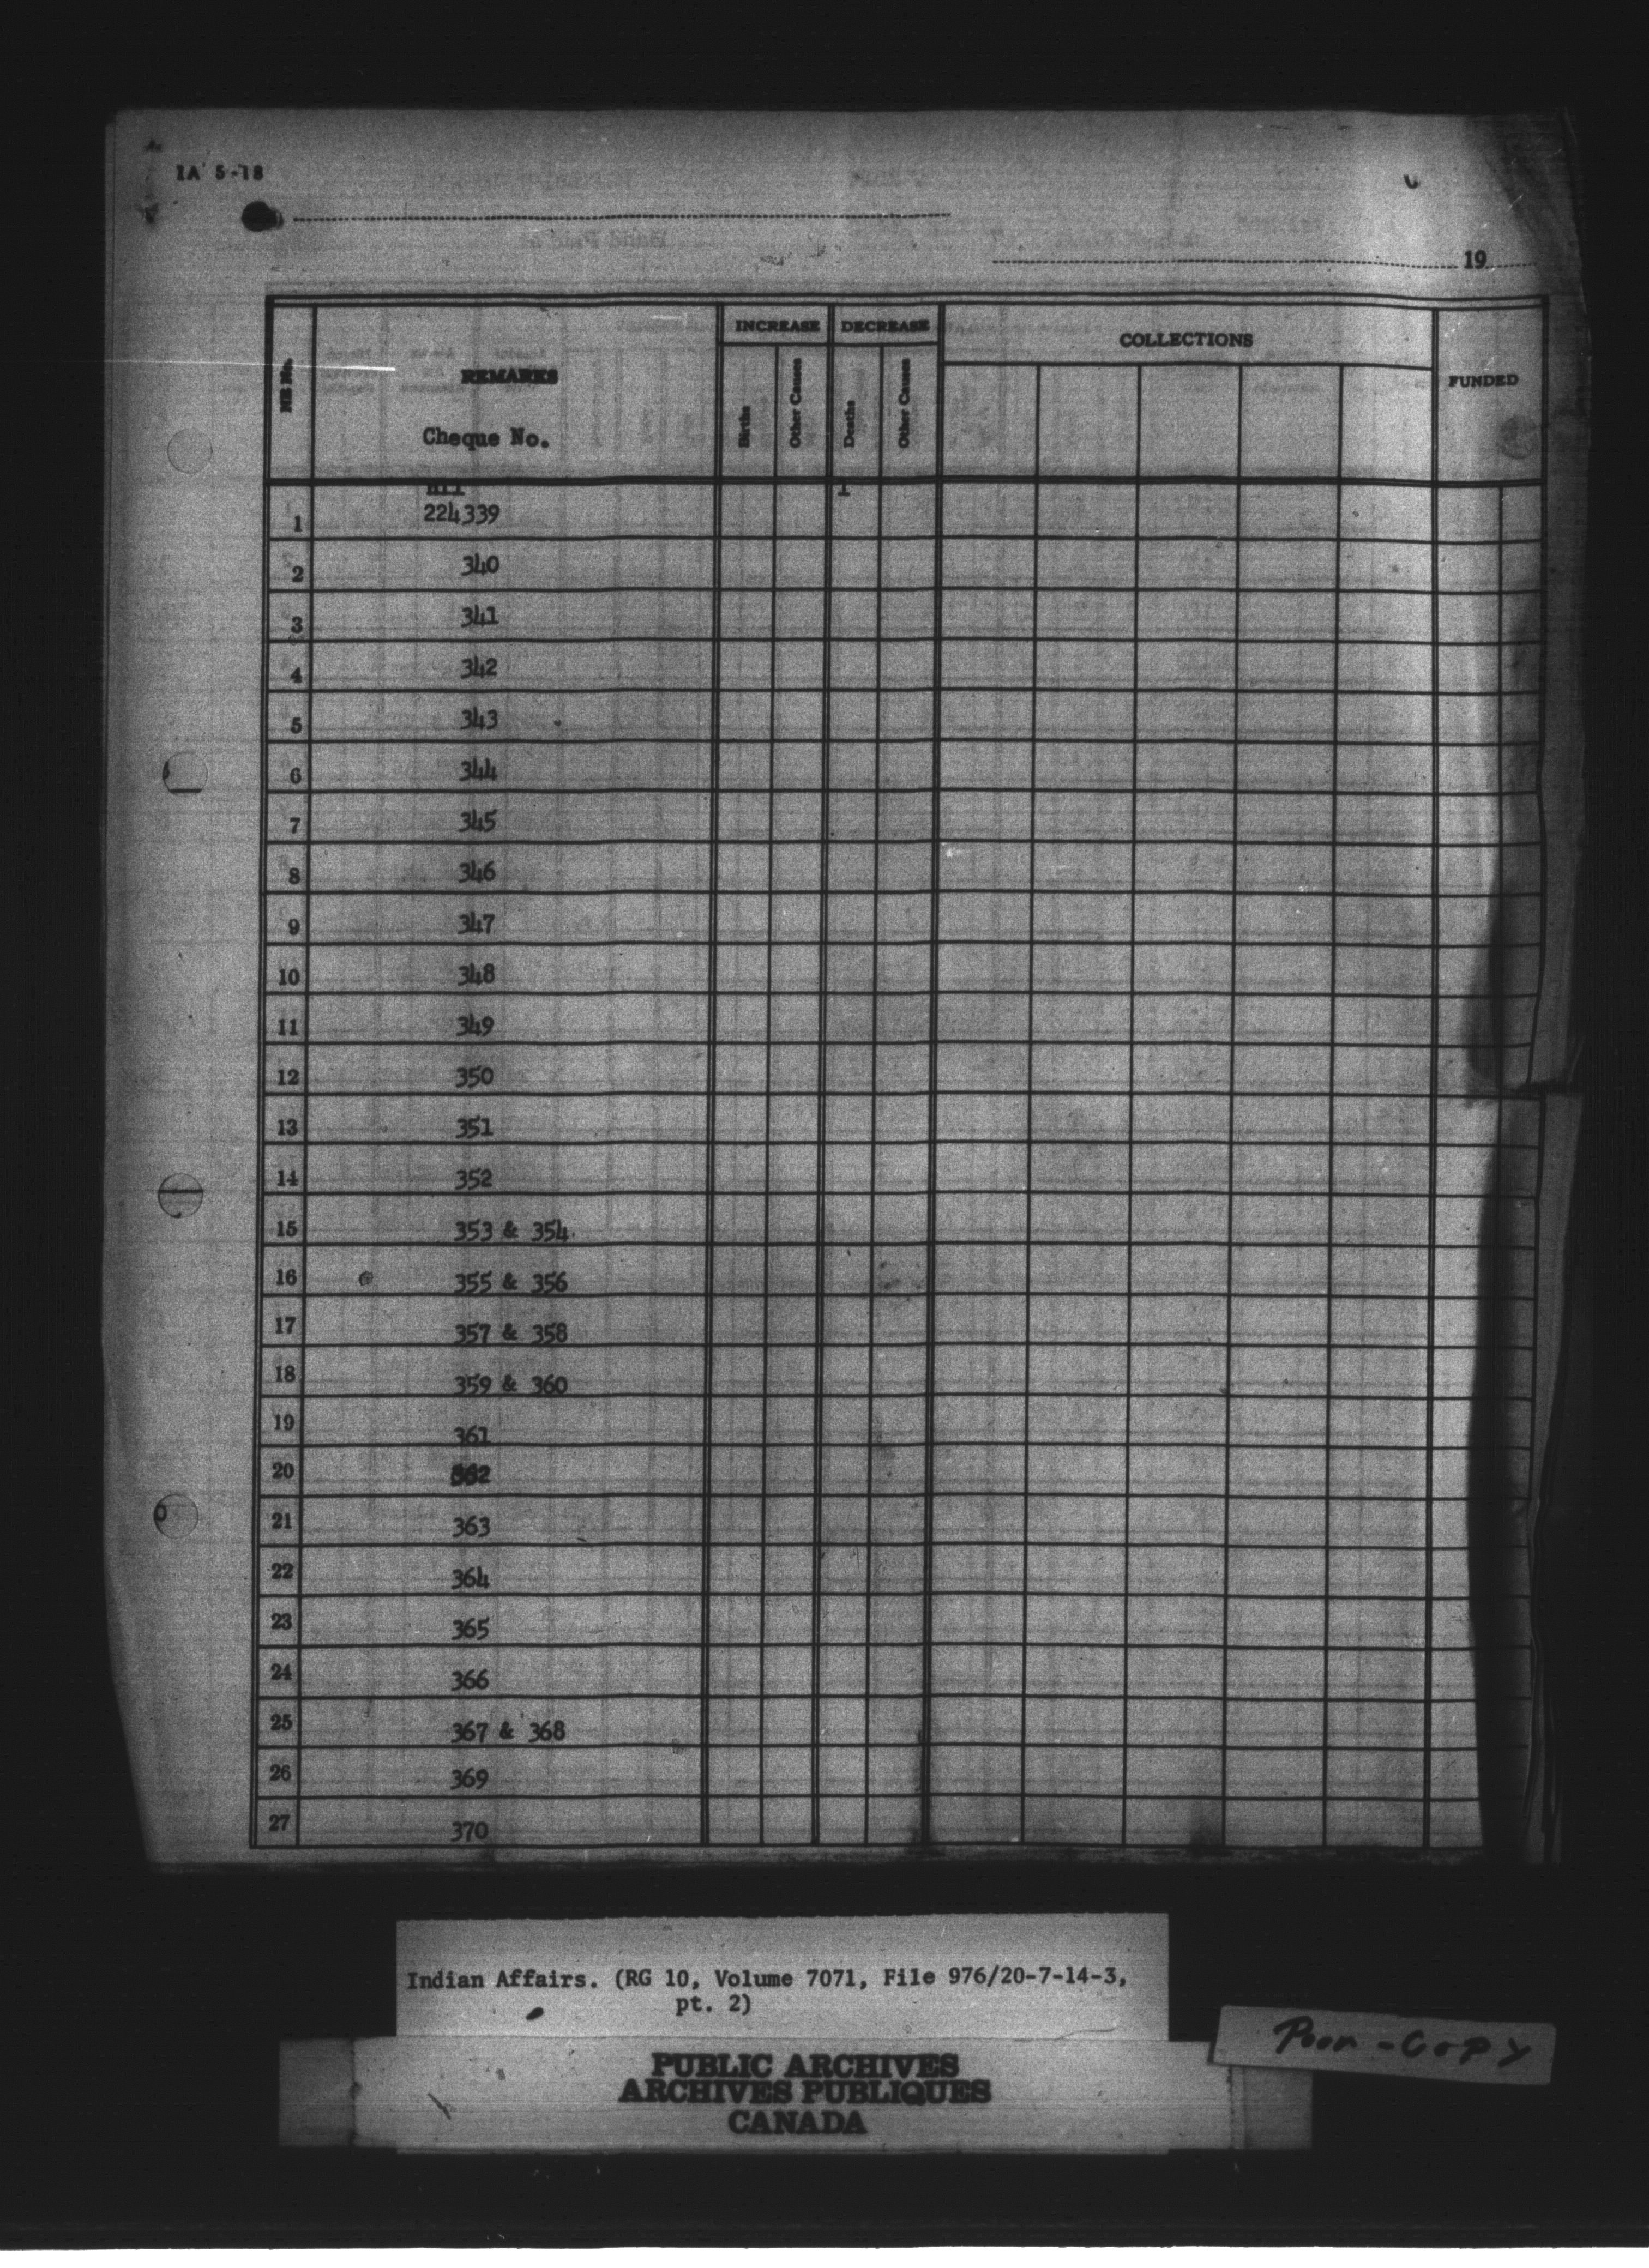 IA 5-18
19
NE No.
REMARKS
Cheque No.
INCREASE
DECREASE
COLLECTIONS
FUNDED
Births
Other Causes
Deaths
Other Causes
nil 1
1 224339
2 340
3 341
4 342
5 343
6 344
7 345
8 346
9 347
10 348
11 349
12 350
13 351
14 352
15 353 & 354
16 355 & 356
17 357 & 358
18 359 & 360
19 361
20 362
21 363
22 364
23 365
24 366
25 367 & 368
26 369
27 370
Indian Affairs. (RG 10, Volume 7071, File 976/20-7-14-3,
pt. 2)
Poor - Copy
PUBLIC ARCHIVES
ARCHIVES PUBLIQUES
CANADA